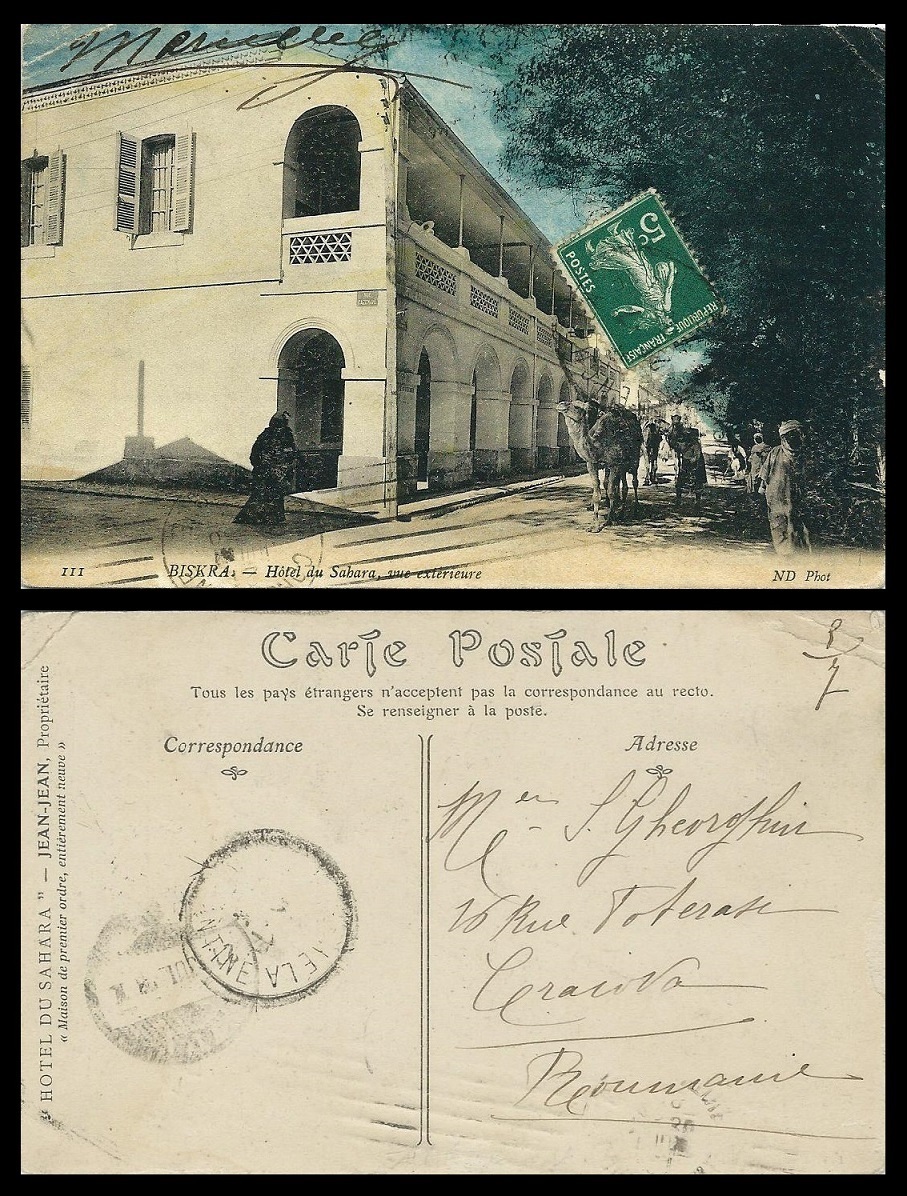 5c
POSTES
REPUBLIQUE FRANÇAISE
111 BISKRA. — Hôtel du Sahara, vue extérieure ND Phot
Carte Postale
Tous les pays étrangers n'acceptent pas la correspondance au recto.
Se renseigner à la poste.
Correspondance
Adresse
" HOTEL DU SAHARA " — JEAN-JEAN, Propriétaire
« Maison de premier ordre, entièrement neuve »
S. Gheorghiu
16 Rue
Craiova
Roumanie